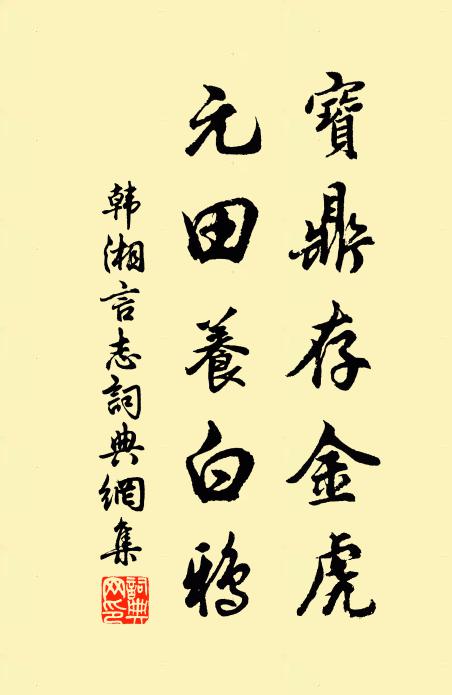 寶鼎存金虎
元田養白鴉
韩湘言志詞典網集
詞典网印